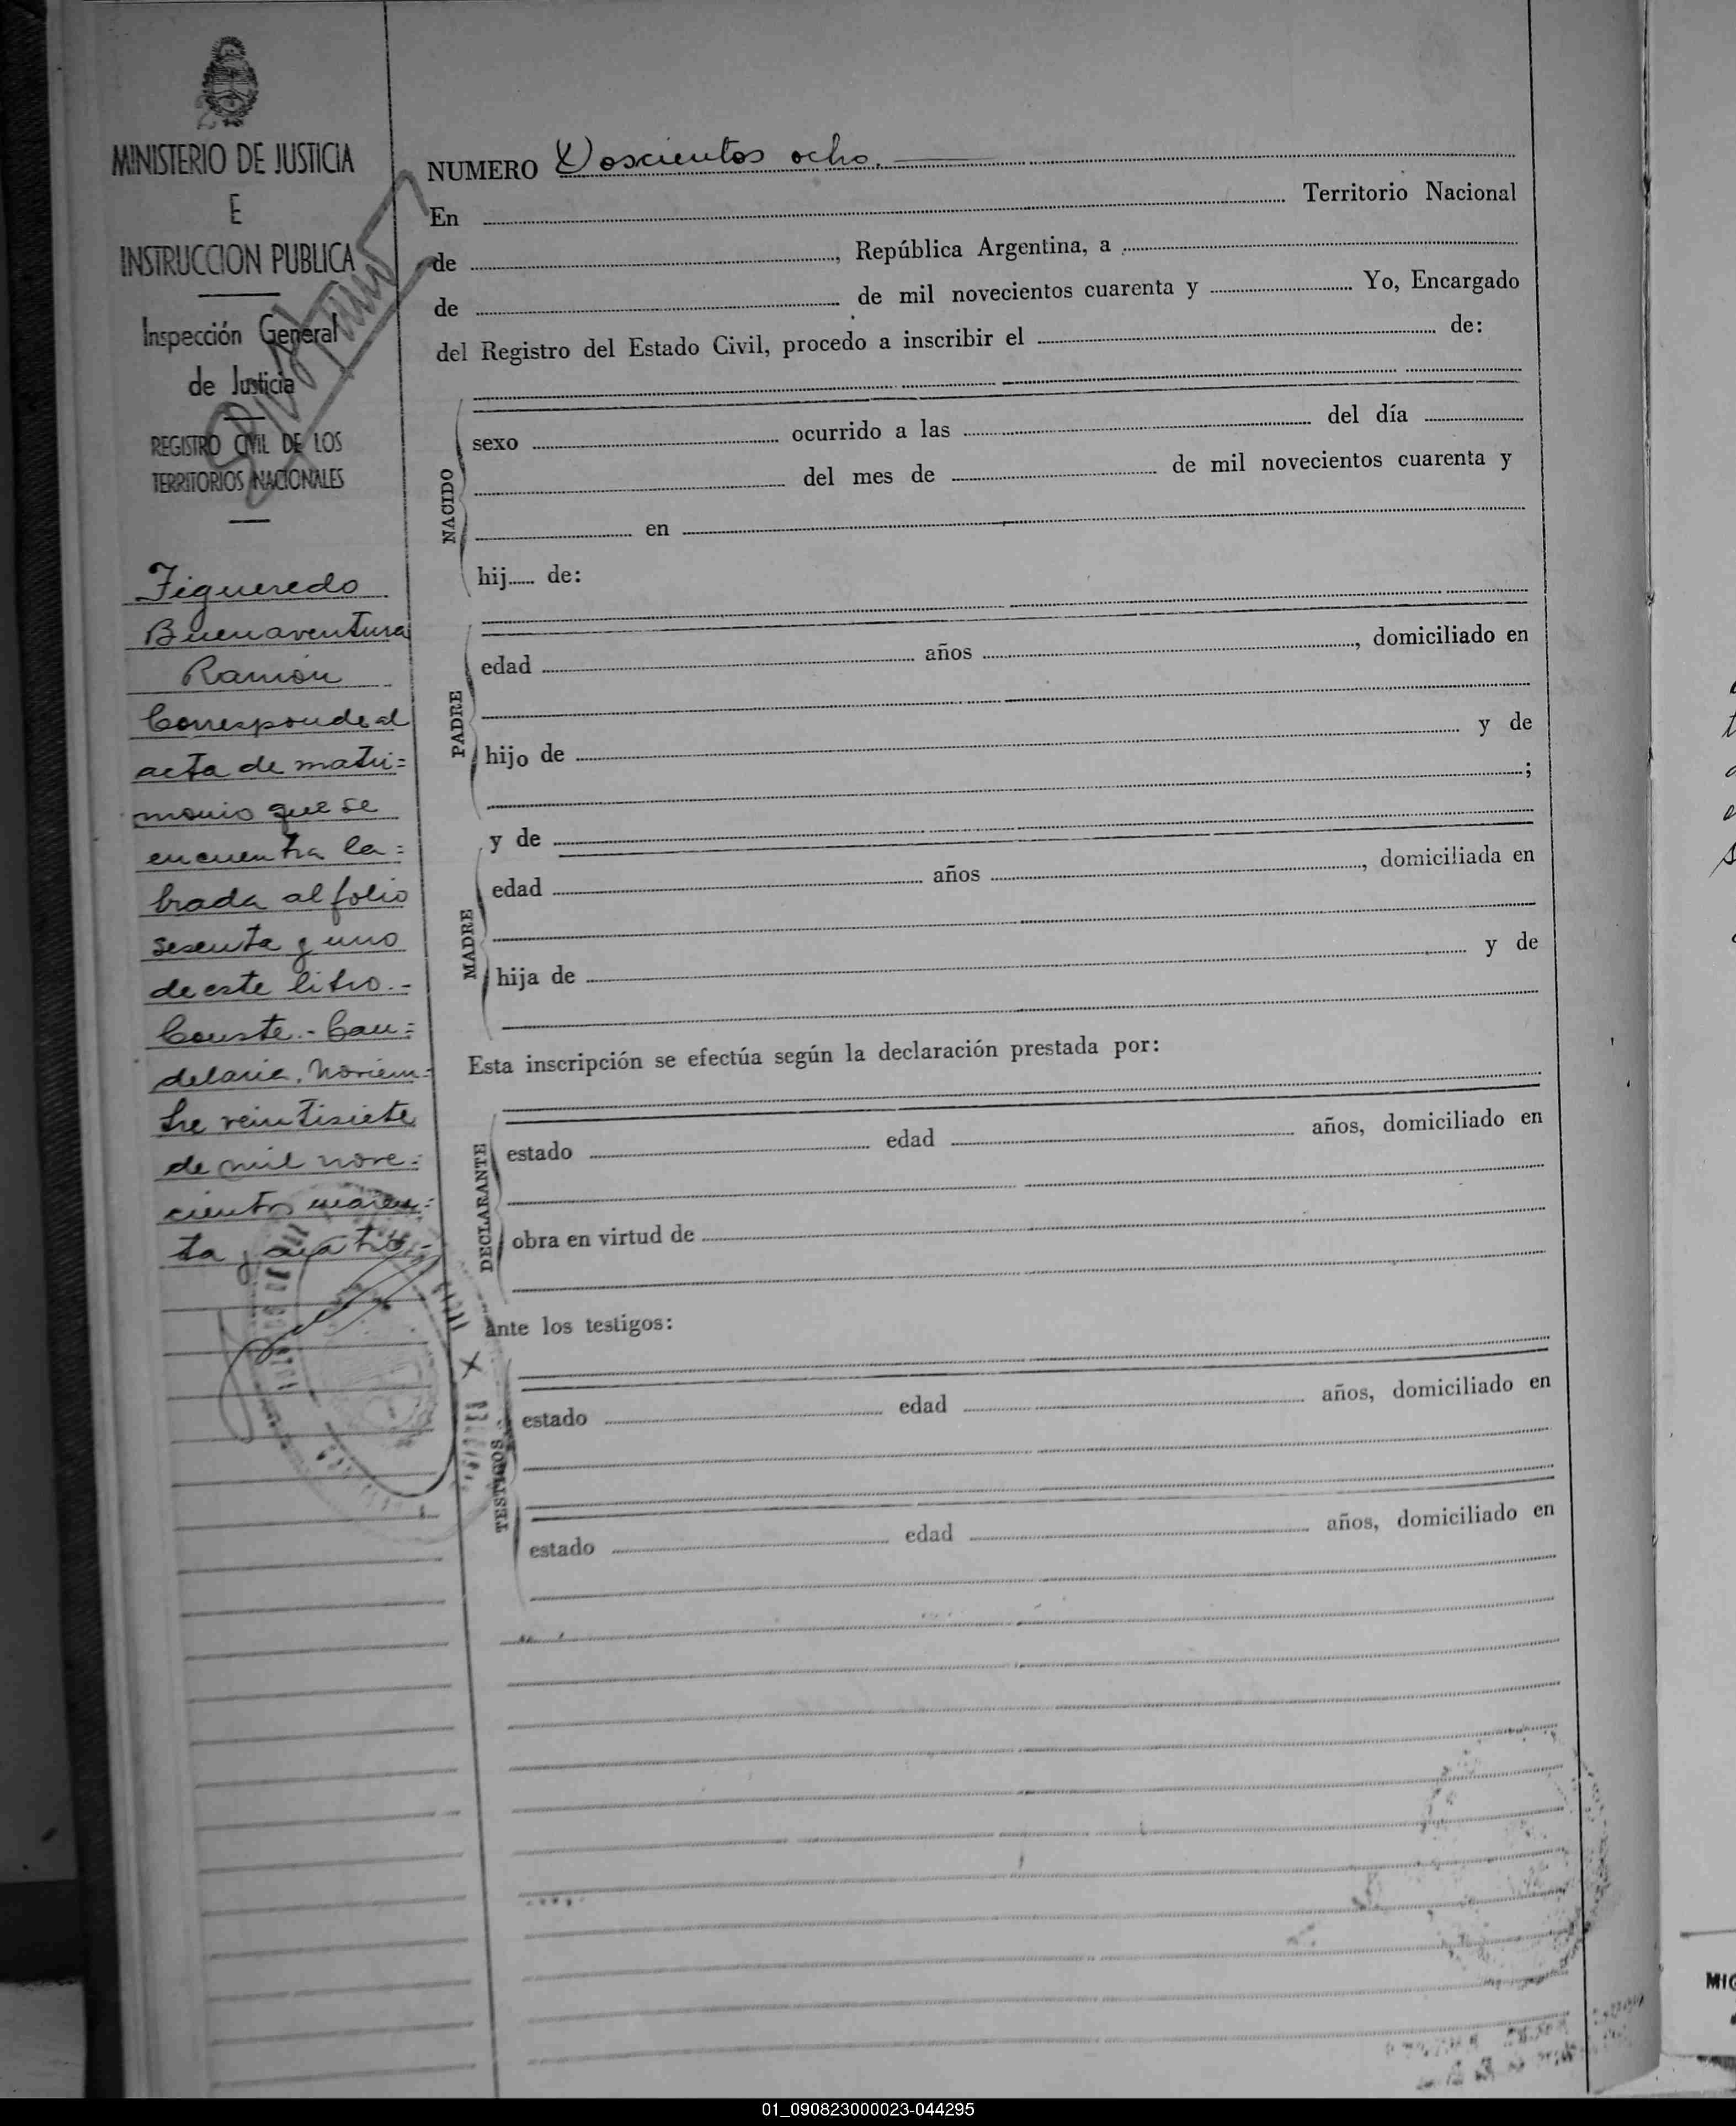 MINISTERIO DE JUSTICIA
E
INSTRUCCION PUBLICA
Inspección General
de Justicia
REGISTRO CIVIL DE LOS
TERRITORIOS NACIONALES
Figueredo
Buenaventura
Ramón
Corresponde al
acta de matri=
monio que se
encuentra la=
brada al folio
sesenta y uno
de este libro.-
Conste.- Can=
delaria, Noviem=
bre veintisiete
de mil nove=
cientos cuaren=
ta y cuatro.-
NUMERO Doscientos ocho.
En Territorio Nacional
de , República Argentina, a
de de mil novecientos cuarenta y Yo, Encargado
del Registro del Estado Civil, procedo a inscribir el de:
NACIDO
sexo ocurrido a las del día
del mes de de mil novecientos cuarenta y
en
hij...... de:
PADRE
edad años , domiciliado en
hijo de y de
;
y de
MADRE
edad años , domiciliada en
hija de y de
Esta inscripción se efectúa según la declaración prestada por:
DECLARANTE
estado edad años, domiciliado en
obra en virtud de
ante los testigos:
TESTIGOS
estado edad años, domiciliado en
estado edad años, domiciliado en
01_090823000023-044295